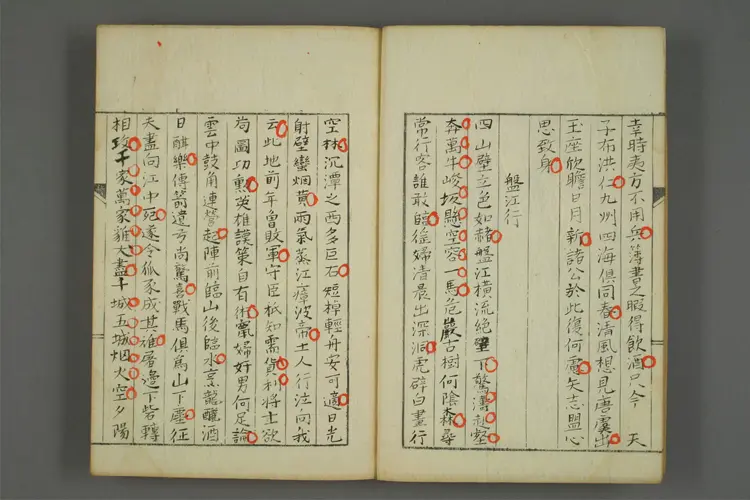 幸時夷方不用兵簿書之暇得飲酒只今　天
子布洪仁九州四海俱同春清風想見唐虞出
王座欣瞻日月新諸公於此復何慮矢志盟心
思致身
盤江行
四山壁立色如赭盤江橫流絕壁下驚濤赴壑
奔萬牛峻坂懸空容一馬危巖古樹何陰森尋
常行客誰敢臨征婦清晨出深洞虎辟白晝行
空林沉潭之西多巨石短棹輕舟安可適日光
射壁蠻烟黄雨氣蒸江瘴波帝土人行泣向我
云此地前年曾敗軍守臣秖知需貨利將士欲
苟圖功勲英雄謨策自有術寡婦好男何足論
雲中鼓角連營起陣前臨山後臨水烹龍釃酒
日酣樂傳箭遺弓尚驚喜戰馬俱爲山下塵征
夫盡向江中死遂令狐豕成其雄層邊下皆轉
相攻千家萬家雞犬盡十城五城烟火空夕陽